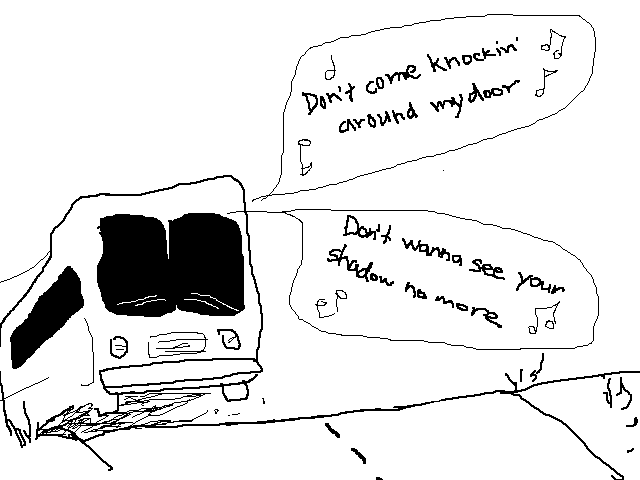 Don't come knockin'
around my door
Don't wanna see your
shadow no more